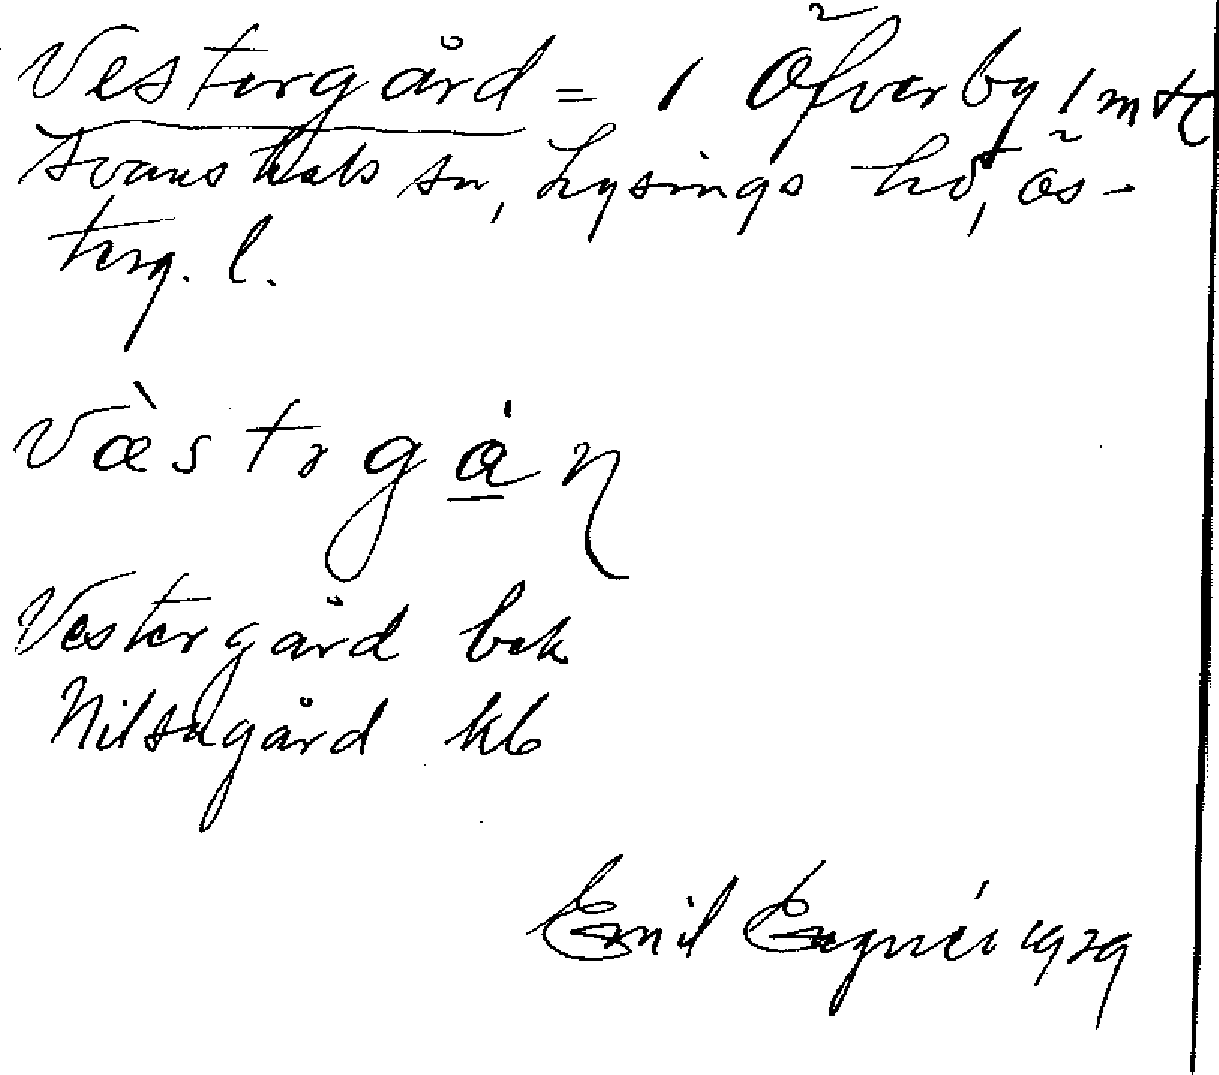 Vestergård = 1 Öfverby 1 mtl
Svanshals sn, Lysings hd, Ös-
terg. l.
Vàstrgán
Vestergård bek
Nilsagård kb
Emil 1929